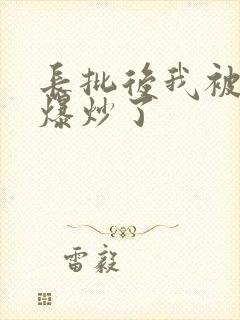 長批後我被
爆炒了
雷毅